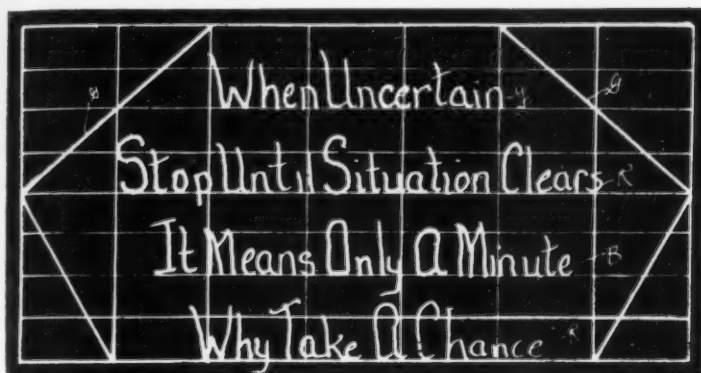 When Uncertain -y
Stop Until Situation Clears -R
It Means Only A Minute -B
Why Take A Chance -R